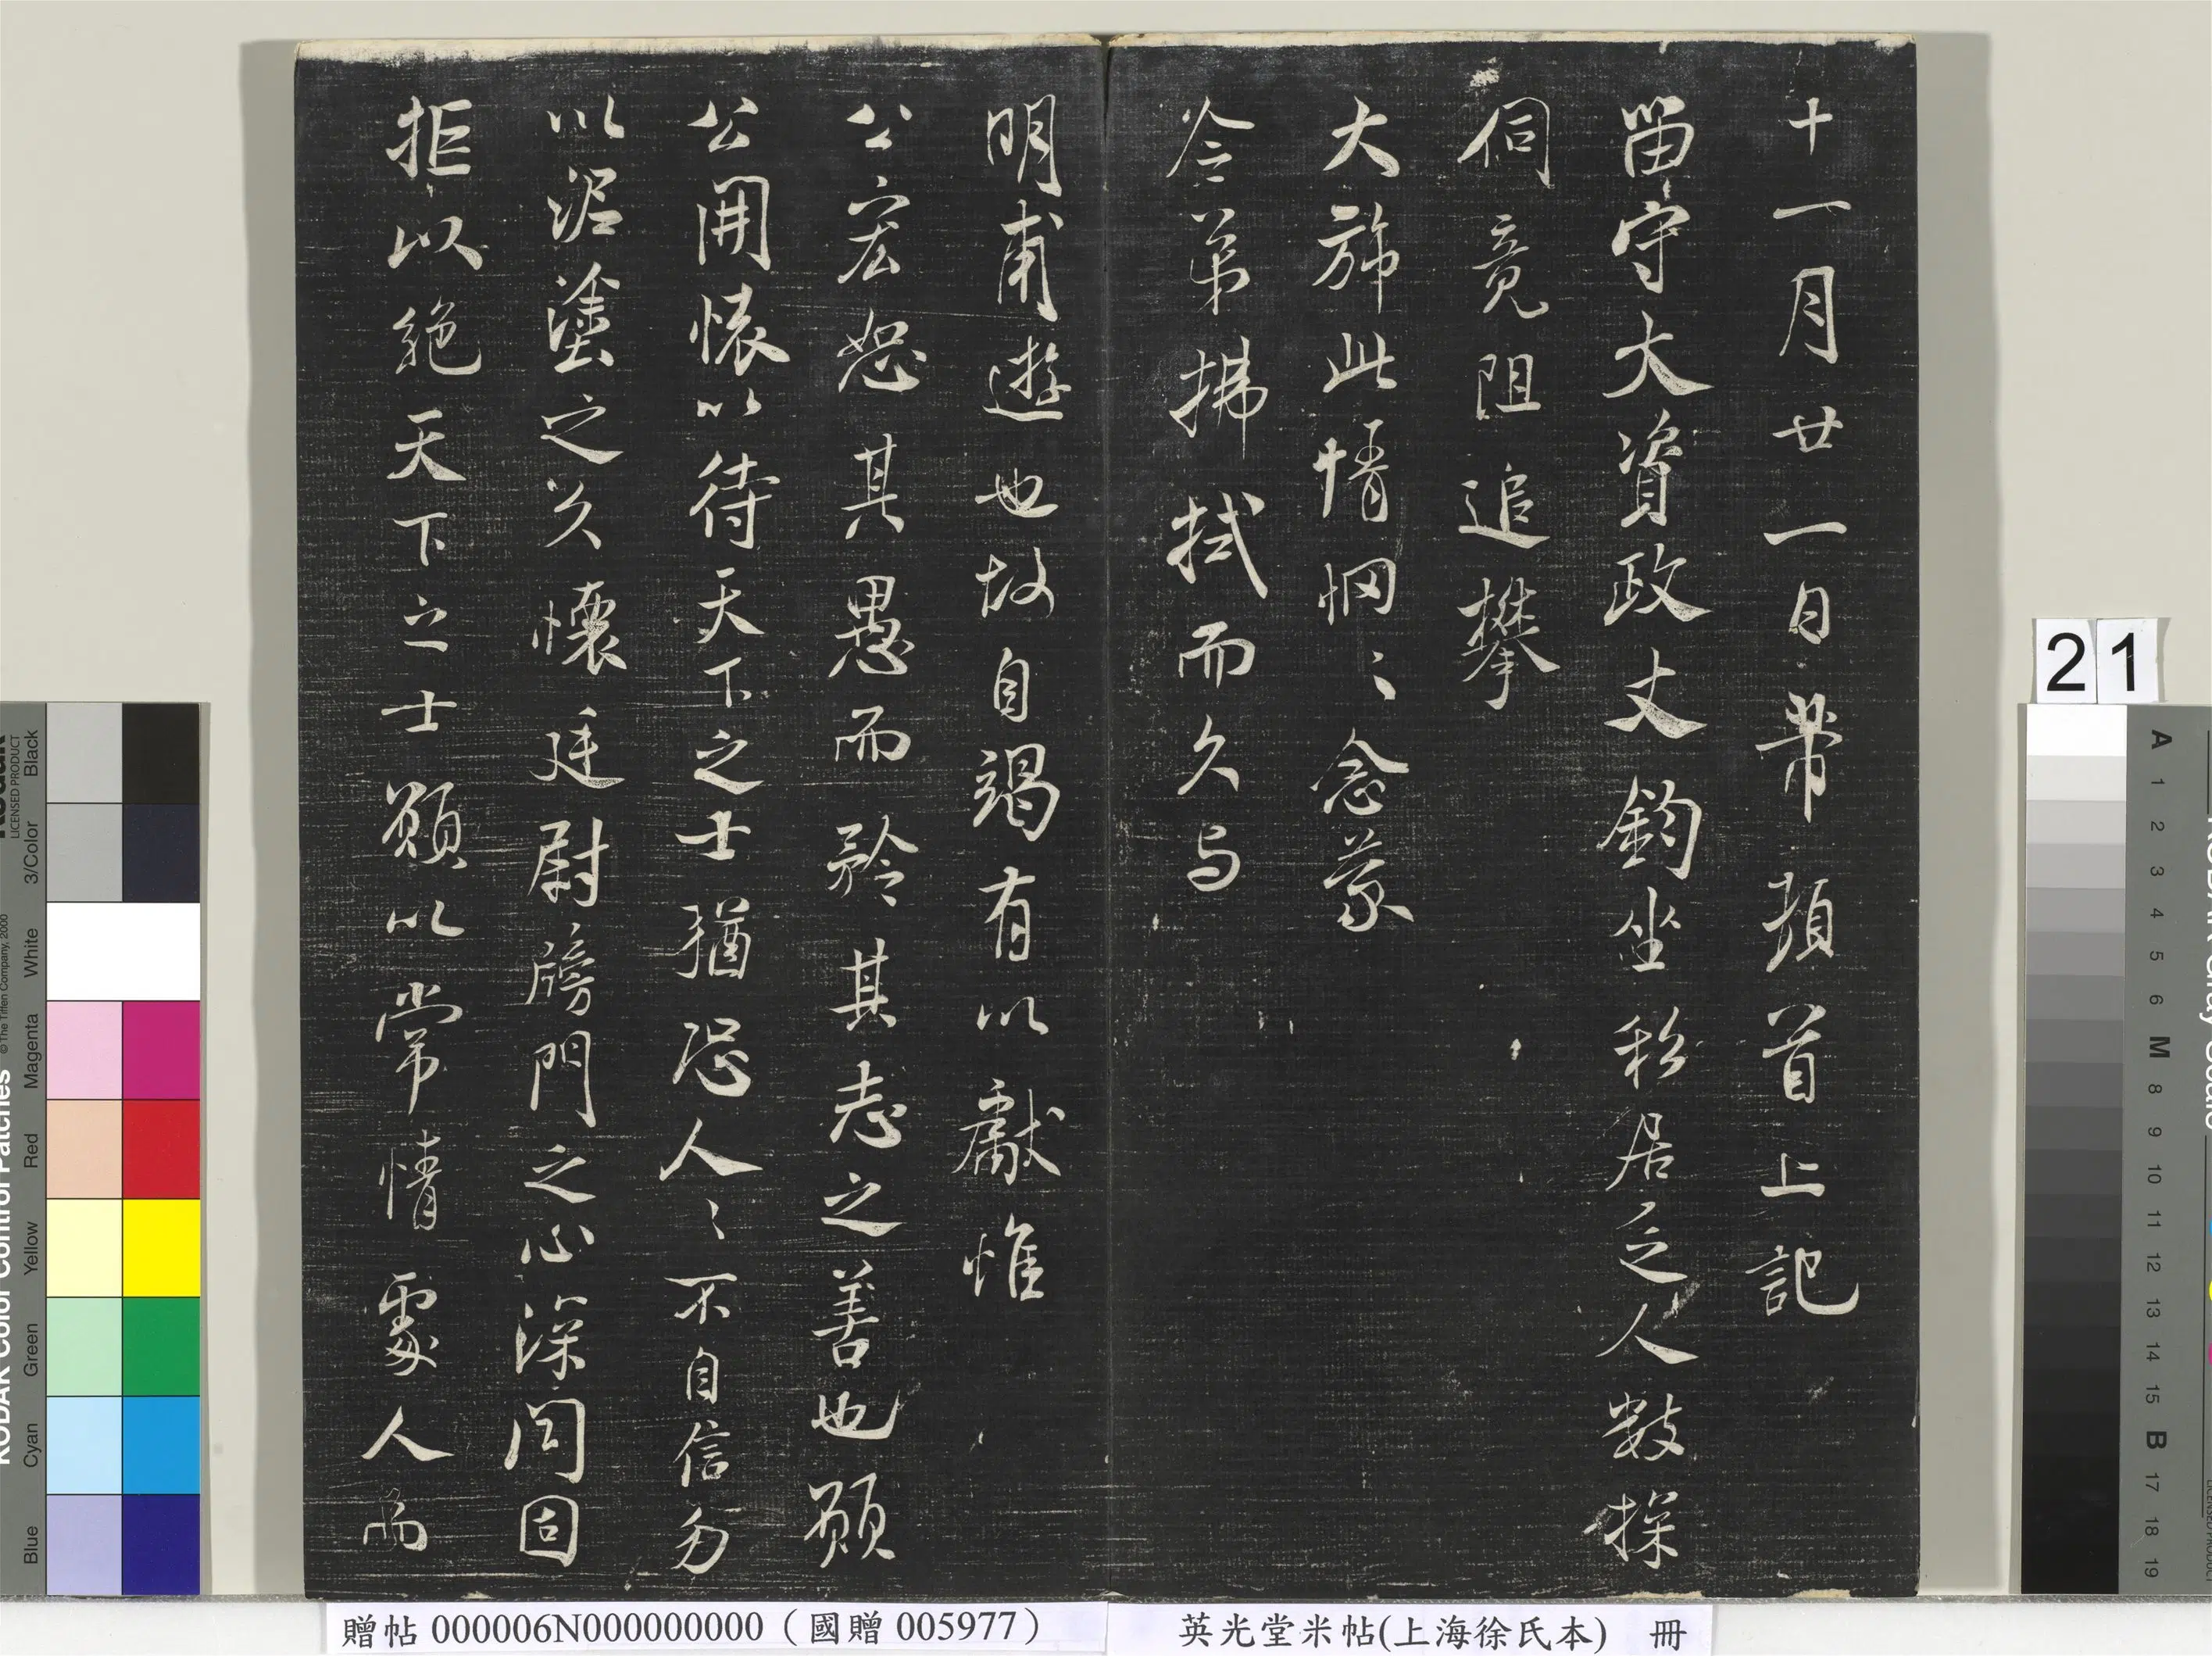 十一月廿一日芾頓首上記
留守大資政丈鈞坐私居之人數探
伺竟阻追攀
大旆此情惘〻念蒙
令弟拂拭而久与
明甫遊也故自竭有以獻惟
公宏恕其愚而矜其志之善也願
公開懷以待天下之士猶恐人〻不自信勿
以泥塗之久懷廷尉牓門之心深閉固
拒以絕天下之士願以常情處人而
贈帖 000006N000000000（國贈 005977）
英光堂米帖(上海徐氏本) 冊
21
KODAK Color Control Patches
© The Tiffen Company, 2000
LICENSED PRODUCT
Blue Cyan Green Yellow Red Magenta White 3/Color Black
A 1 2 3 4 5 6 M 8 9 10 11 12 13 14 15 B 17 18 19